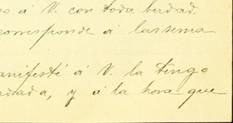 á V. con toda berdad.
corresponde á la sema
anifesté á V. la tengo
y á la hora que